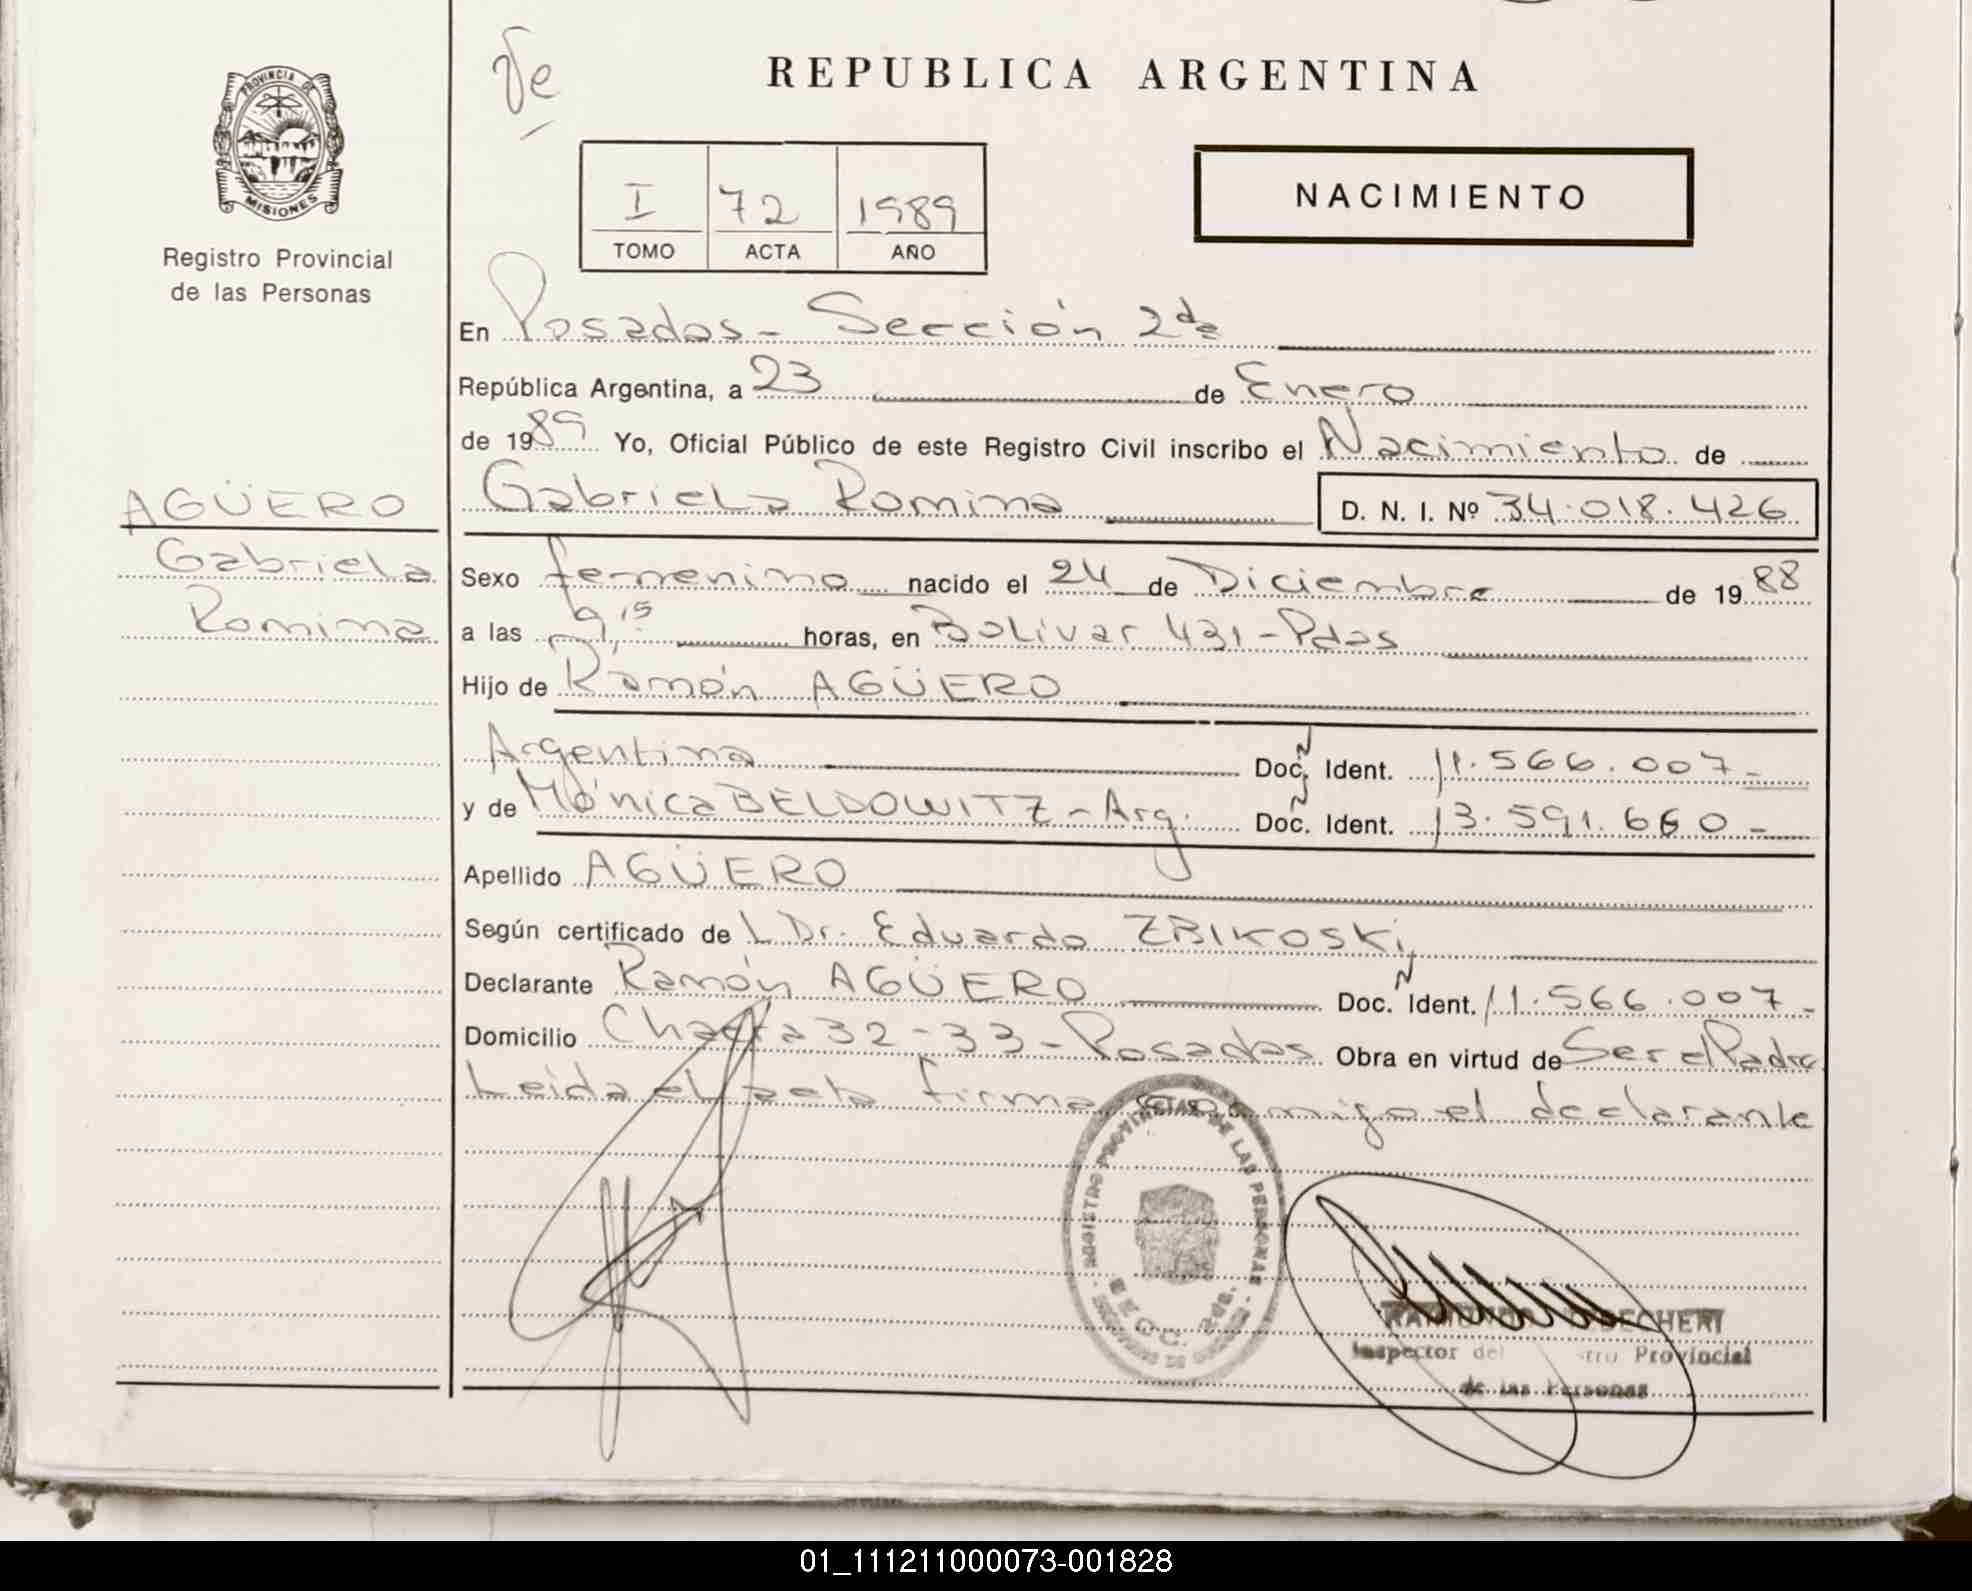 REPUBLICA ARGENTINA
PROVINCIA DE MISIONES
Registro Provincial
de las Personas
I 72 1989
TOMO ACTA AÑO
NACIMIENTO
En Posadas - Sección 2da
República Argentina, a 23 de Enero
de 1989 Yo, Oficial Público de este Registro Civil inscribo el Nacimiento de
Gabriela Romina D. N. I. Nº 34.018.426
AGÜERO
Gabriela
Romina
Sexo femenino nacido el 24 de Diciembre de 1988
a las 9,15 horas, en Bolívar 431 - Pdas
Hijo de Ramón AGÜERO
Argentina Doc. Ident. 11.566.007-
y de Mónica BELDOWITZ - Arg. Doc. Ident. 13.591.660-
Apellido AGÜERO
Según certificado de L Dr. Eduardo ZBIKOSKI
Declarante Ramón AGÜERO Doc. Ident. 11.566.007-
Domicilio Chacra 32-33 - Posadas Obra en virtud de Ser el Padre
Leída el acta firma conmigo el declarante
REGISTRO PROVINCIAL DE LAS PERSONAS
Inspector del Provincial
de las Personas
01_111211000073-001828